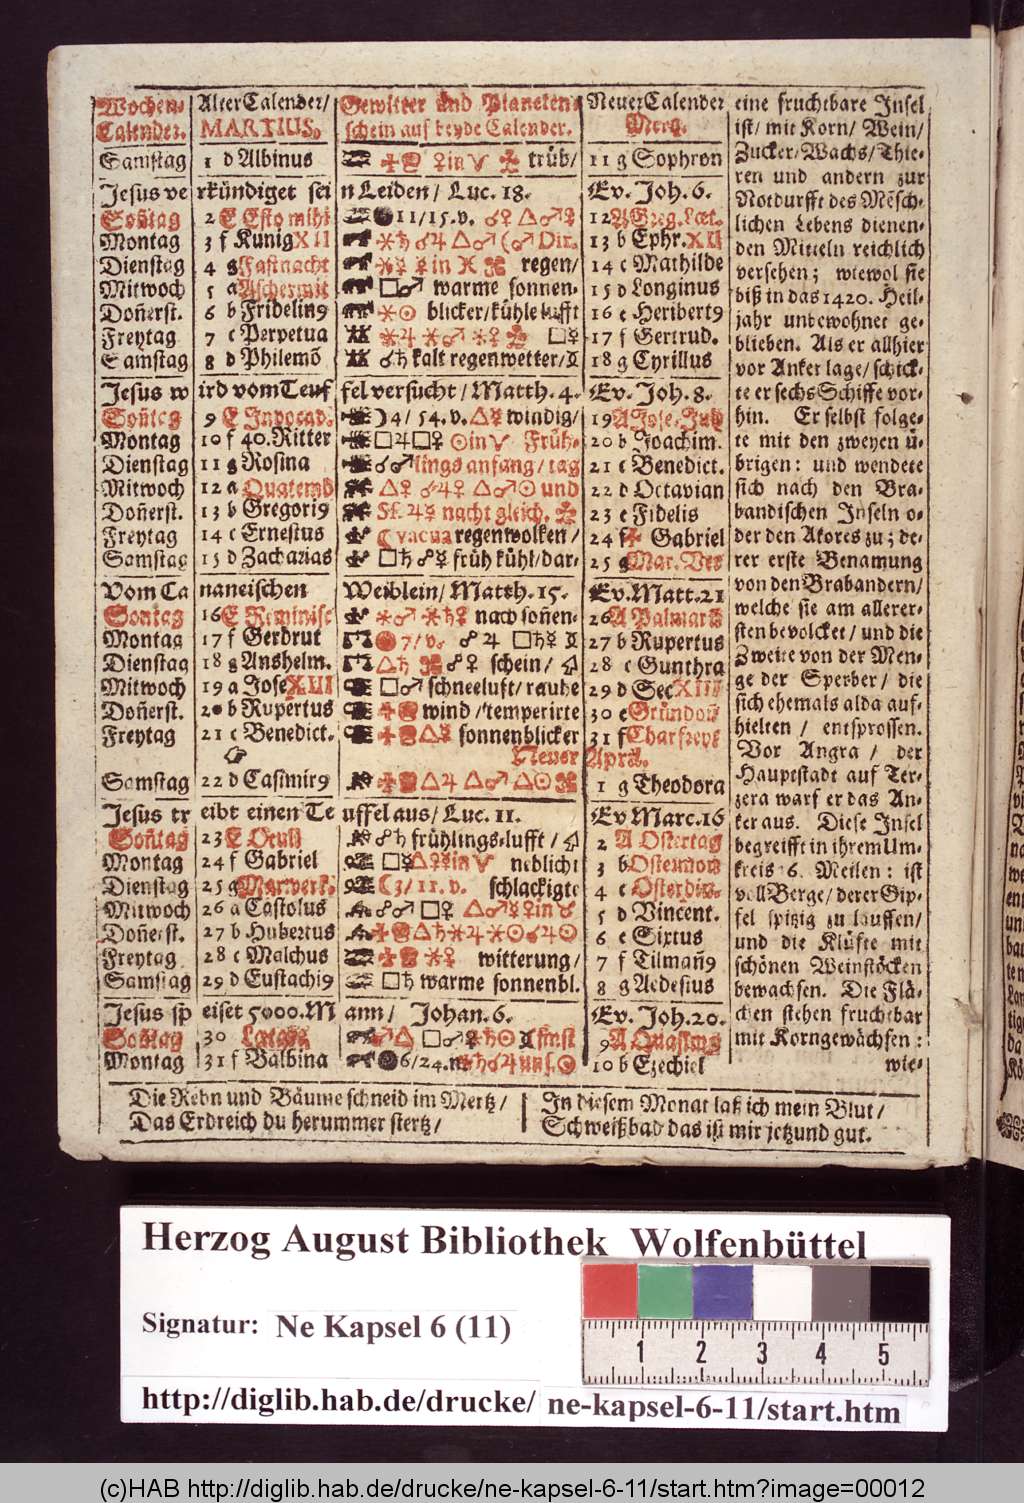 Wochen- Alter Calender/ Gewitter und Planeten- Neuer Calender
Calender. MARTIUS. schein auf beyde Calender. Mertz.
Samstag 1 d Albinus ♀ in ♈ trüb/ 11 g Sophron
Jesus verkündiget sein Leiden/ Luc. 18. Ev. Joh. 6.
Soñtag 2 E Esto mihi 11/15.v. ☌♀ △♂☿ 12 A Greg. Læt.
Montag 3 f Kunig XII ⚹♄ ☌♃ △♂ (♂ Dir. 13 b Ephr. XII
Dienstag 4 g Fastnacht ⚹☿ ☿ in ♓ regen/ 14 c Mathilde
Mitwoch 5 a Aschermit □♂ warme sonnen- 15 d Longinus
Doñerst. 6 b Fridelin9 ⚹☉ blicker/kühle lufft 16 e Heribert9
Freytag 7 c Perpetua ⚹♃ ⚹♂ ⚹♀ □☿ 17 f Gertrud.
Samstag 8 d Philemõ ☌♄ kalt regenwetter/ 18 g Cyrillus
Jesus wird vom Teuffel versucht/ Matth. 4. Ev. Joh. 8.
Soñtag 9 E Invocav. ☽4/54.v. △☿ windig/ 19 A Jose. Jud
Montag 10 f 40. Ritter □♃□♀ ☉ in ♈ Früh- 20 b Joachim.
Dienstag 11 g Rosina ☌♂ lings anfang/ tag 21 c Benedict.
Mitwoch 12 a Quatemb △♀ ☍♃♀ △♂☉ und 22 d Octavian
Doñerst. 13 b Gregori9 ♃☿ nacht gleich. 23 e Fidelis
Freytag 14 c Ernestus ☾ vacua regenwolken/ 24 f Gabriel
Samstag 15 d Zacharias □♄ ☍☿ früh kühl/dar- 25 g Mar. Ver
Vom Cananeischen Weiblein/ Matth. 15. Ev. Matt. 21
Soñtag 16 E Reminisc ⚹♂ ⚹♄☿ nach soñen- 26 A Palmarũ
Montag 17 f Gerdrut 7/v. ☍♃ □♄☿ 27 b Rupertus
Dienstag 18 g Anshelm. △♄ ☍♀ schein/ 28 c Gunthra
Mitwoch 19 a Jose XIII □♂ schneeluft/ rauhe 29 d Sec XIII
Doñerst. 20 b Rupertus wind/ temperirte 30 e Gründoñ
Freytag 21 c Benedict. △☿ sonnenblicker 31 f Charfreyt
Neuer April.
Samstag 22 d Casimir9 △♃ △♂ △☉ 1 g Theodora
Jesus treibt einen Teuffel aus/ Luc. 11. Ev. Marc. 16
Soñtag 23 E Oculi ☍♄ frühlings-lufft/ 2 A Ostertag
Montag 24 f Gabriel □☿△♀☿ in ♈ neblicht 3 b Ostermon
Dienstag 25 g Mar. verk. ☾3/11.v. schlackigte 4 c Osterdin.
Mitwoch 26 a Castolus ☍♂ □♀ △♂☿♀ in ♉ 5 d Vincent.
Doñerst. 27 b Hubertus △♄⚹♃⚹☉☌♃☉ 6 e Sixtus
Freytag 28 c Malchus ⚹♀ witterung/ 7 f Tilmañ9
Samstag 29 d Eustachi9 □♄ warme sonnenbl. 8 g Aedesius
Jesus speiset 5000. Mann/ Johan. 6. Ev. Joh. 20.
Soñtag 30 Lætare □♂♀ 9 A Quasimg
Montag 31 f Balbina 6/24.n. 10 b Ezechiel
eine fruchtbare Insel
ist/ mit Korn/ Wein/
Zucker/ Wachs/ Thie-
ren und andern zur
Notdurfft des Mẽsch-
lichen Lebens dienen-
den Mitteln reichlich
versehen; wiewol sie
biß in das 1420. Heil-
jahr unbewohnet ge-
blieben. Als er allhier
vor Anker lage/ schick-
te er sechs Schiffe vor-
hin. Er selbst folge-
te mit den zweyen ü-
brigen: und wendete
sich nach den Bra-
bandischen Inseln o-
der den Akores zu; de-
rer erste Benamung
von den Brabandern/
welche sie am allerer-
sten bevolcket/ und die
Zweite von der Men-
ge der Sperber/ die
sich ehemals alda auf-
hielten/ entsprossen.
Vor Angra/ der
Hauptstadt auf Ter-
zera warf er das An-
ker aus. Diese Insel
begreifft in ihrem Um-
kreis 16. Meilen: ist
voll Berge/ derer Gip-
fel spitzig zu lauffen/
und die Klüfte mit
schönen Weinstöcken
bewachsen. Die Flä-
chen stehen fruchtbar
mit Korngewächsen:
wie-
Die Rebn und Bäume schneid im Mertz/
Das Erdreich du herummer stertz/
In diesem Monat laß ich mein Blut/
Schweißbad das ist mir jetzund gut.
Herzog August Bibliothek Wolfenbüttel
Signatur: Ne Kapsel 6 (11)
1 2 3 4 5
http://diglib.hab.de/drucke/ ne-kapsel-6-11/start.htm
(c)HAB http://diglib.hab.de/drucke/ne-kapsel-6-11/start.htm?image=00012